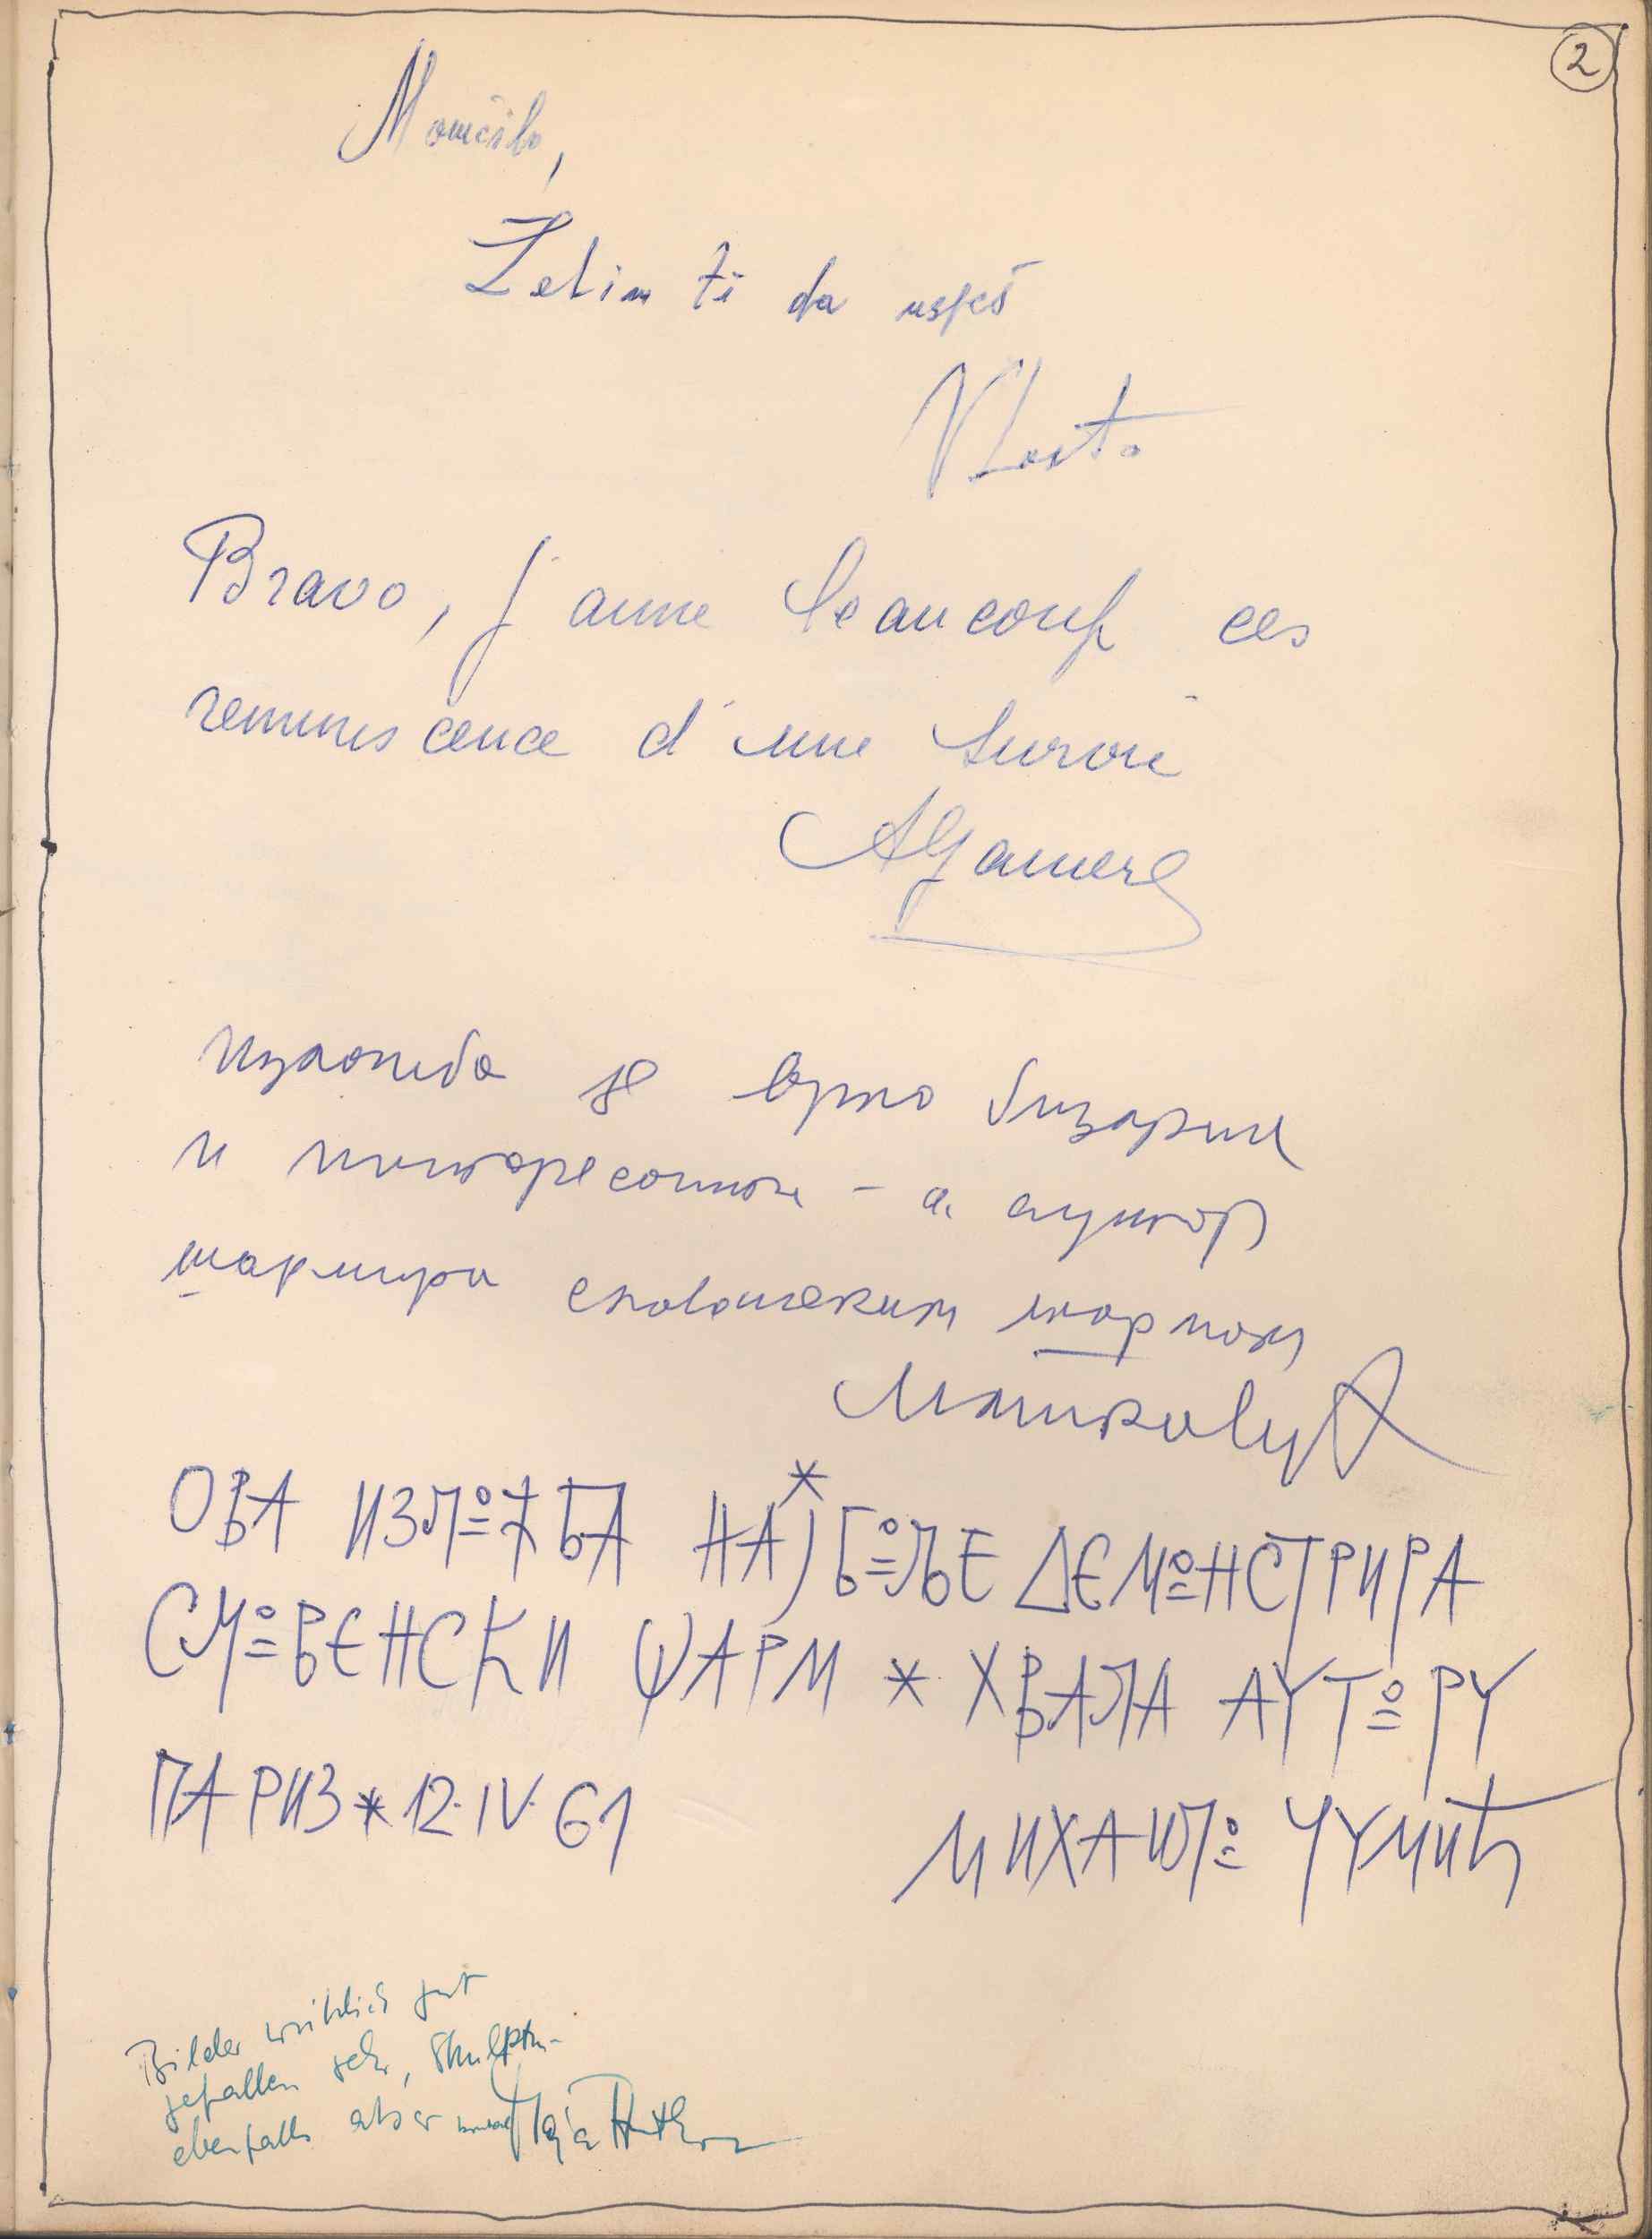 2
Momčilo,
Želim ti da uspeš
Vlasta
Bravo, j'aime beaucoup ces
reminescence d'une survie
Изложба је врло бизарна
и интересантна – а аутор
шармира словенским шармом
ОВА ИЗЛОЖБА НАЈБОЉЕ ДЕМОНСТРИРА
СЛОВЕНСКИ ШАРМ * ХВАЛА АУТОРУ
ПАРИЗ * 12. IV. 61
МИХАИЛО ЧУМИЋ
Bilder wirklich gut
gefallen sehr, Skulptu-
ebenfalls aber